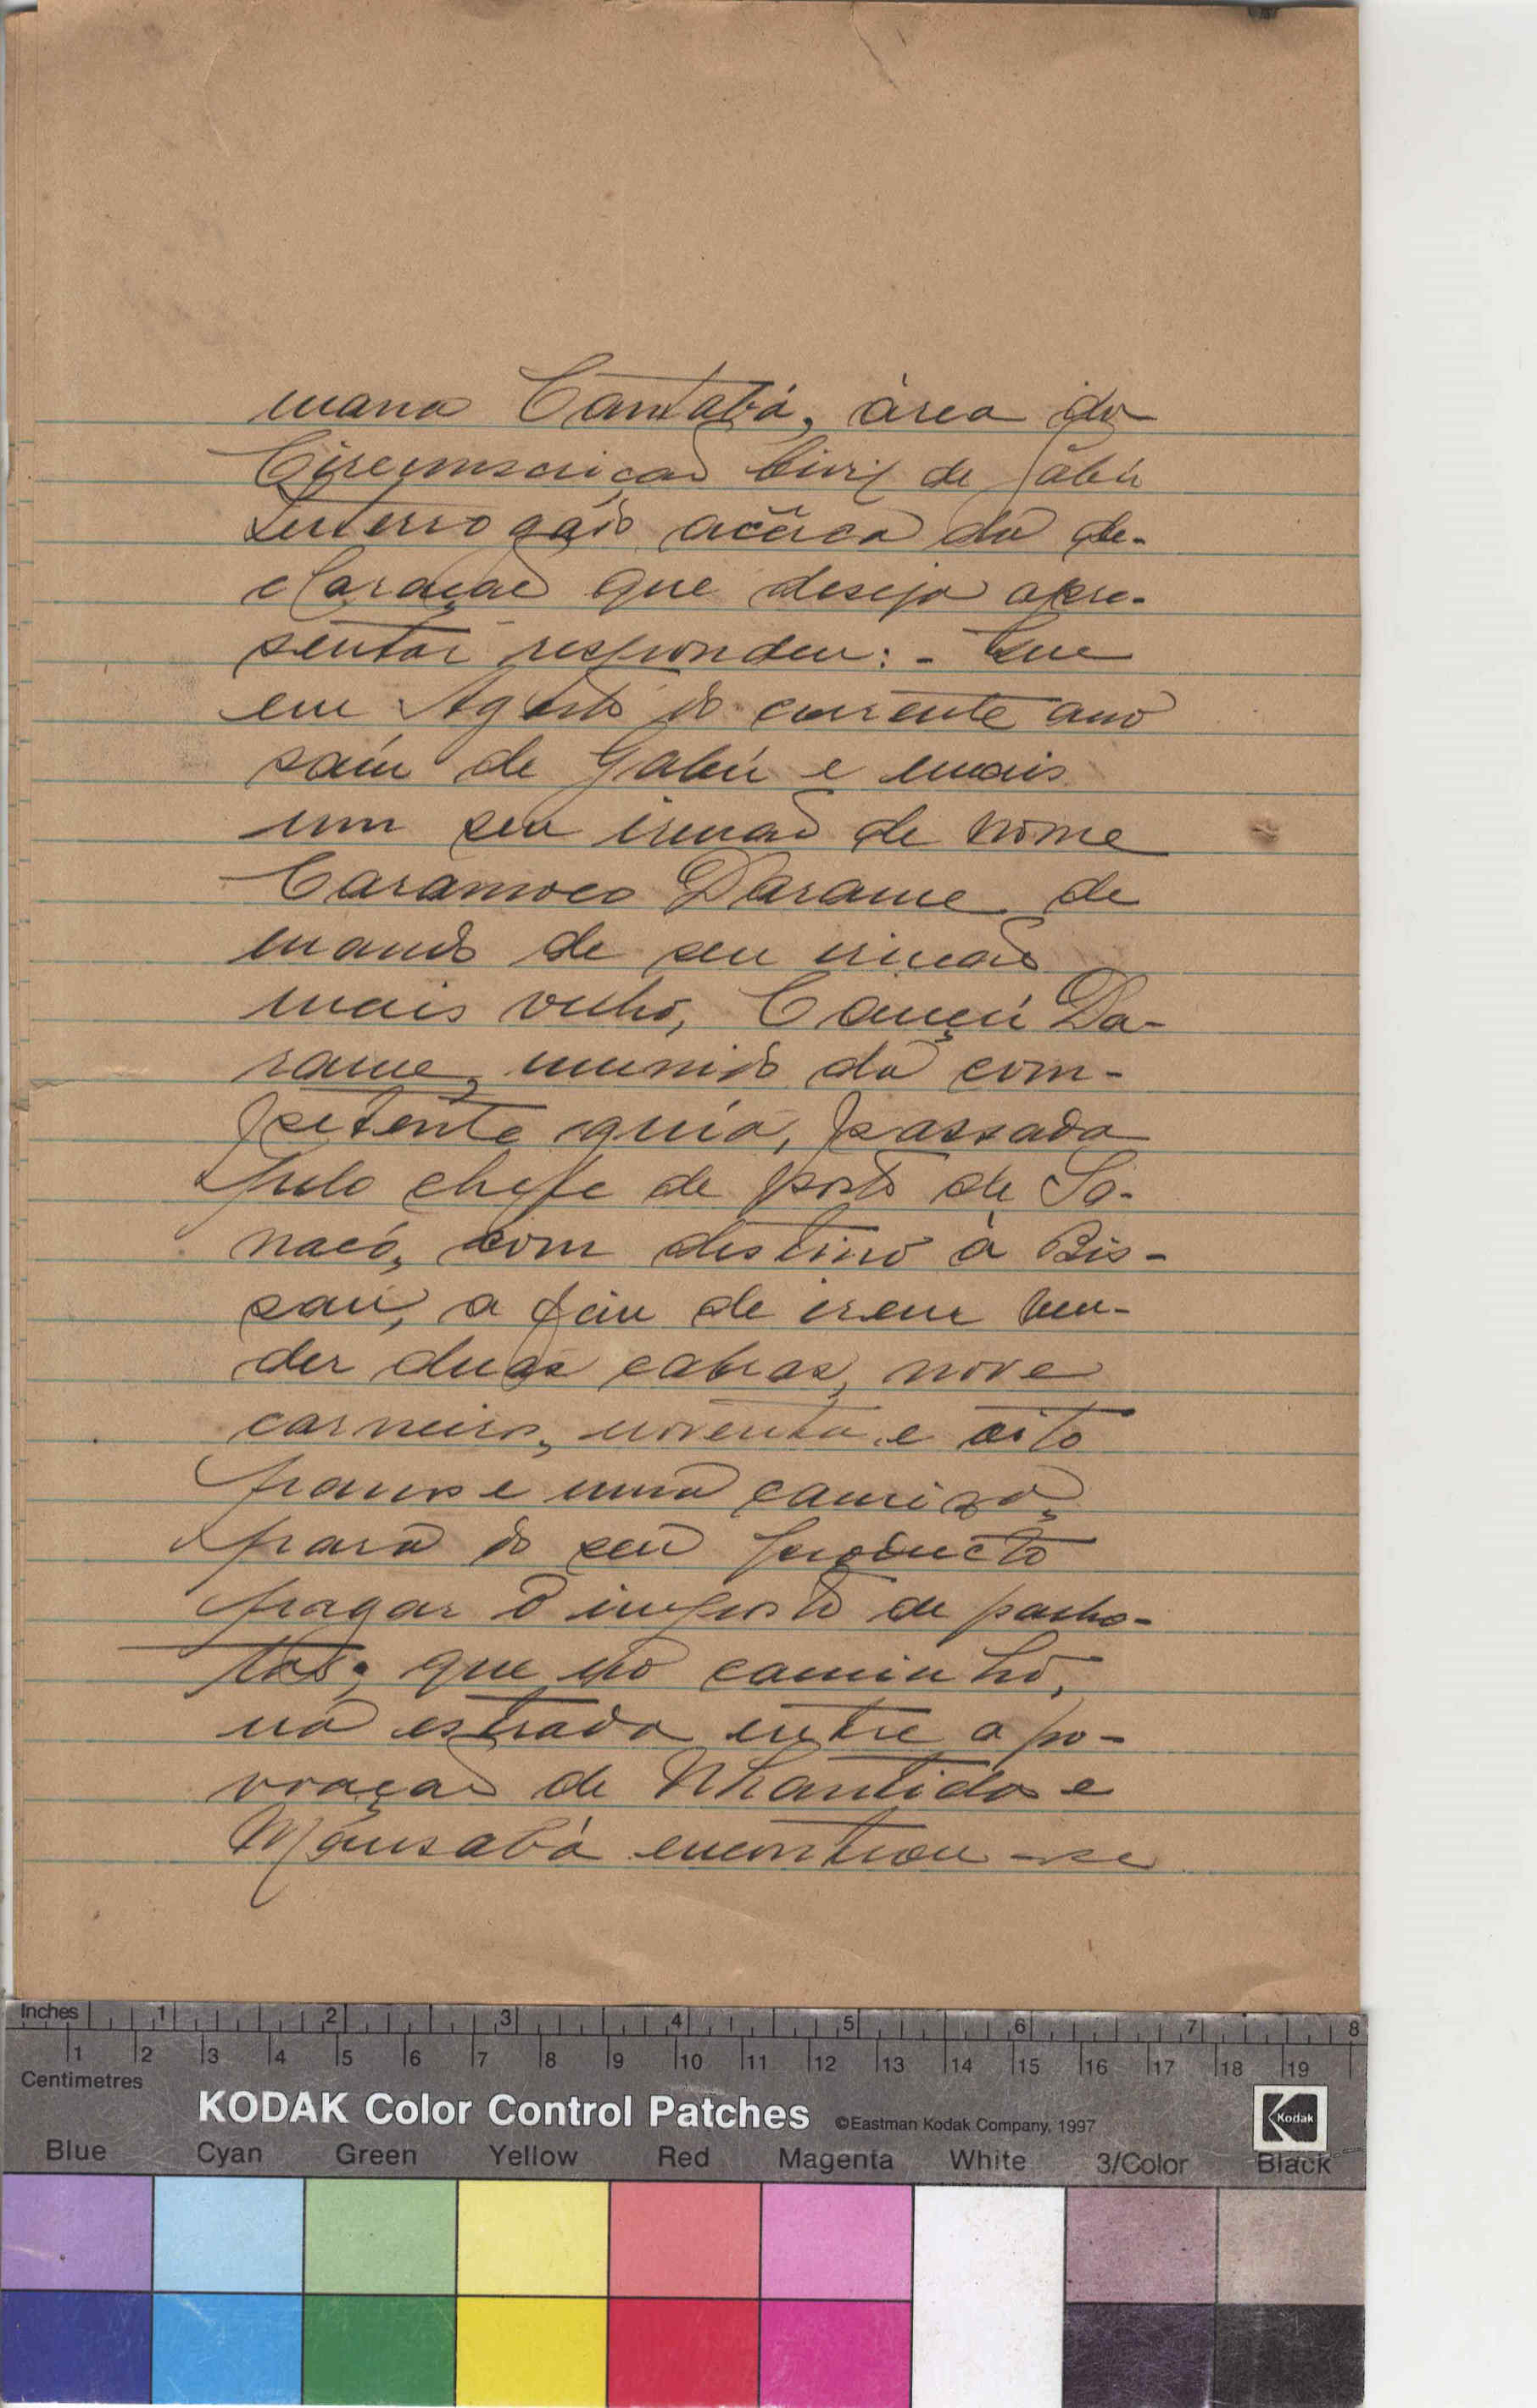 mana Cantabá, àrea da
Circumscrição Civil de Gâbú
Interrogado acêrca da de-
claração que deseja apre-
sentar respondeu: - Que
em Agosto do corrente ano
saíu de Gabú e mais
um seu irmão de nome
Caramoco Darame de
mando de seu irmão
mais velho, Da-
rame, munido da com-
petente guia, passada
pelo chefe de posto de So-
nacó, com destino à Bis-
sau, a fim de irem ven-
der duas cabras, nove
carneiros, noventa e oito
panos e uma camisa,
para do seu producto
pagar o imposto de palho-
tas; que no caminho,
na estrada entre a po-
voação de e
Mansabá encontrou-se
Inches 1 2 3 4 5 6 7 8
1 2 3 4 5 6 7 8 9 10 11 12 13 14 15 16 17 18 19
Centimetres
KODAK Color Control Patches ©Eastman Kodak Company, 1997 Kodak
Blue Cyan Green Yellow Red Magenta White 3/Color Black